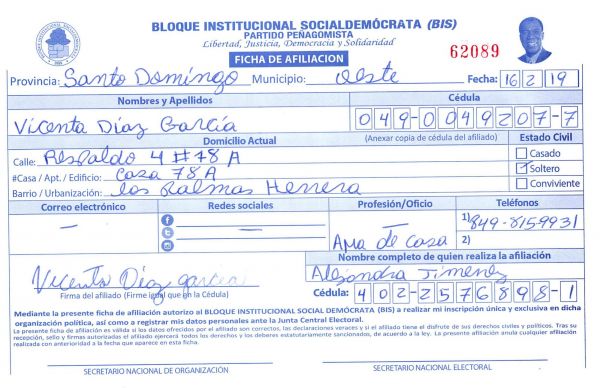 BLOQUE INSTITUCIONAL SOCIALDEMÓCRATA (BIS)
PARTIDO PEÑAGOMISTA
Libertad, Justicia, Democracia y Solidaridad
FICHA DE AFILIACION
62089
Provincia: Santo Domingo Municipio: Oeste Fecha: 16 2 19
Nombres y Apellidos Cédula
Vicenta Díaz García 049-0049207-7
Domicilio Actual (Anexar copia de cédula del afiliado) Estado Civil
Calle: Respaldo 4 # 78 A Casado
#Casa / Apt. / Edificio: Casa 78A Soltero
Barrio / Urbanización: Las Palmas Herrera Conviviente
Correo electrónico Redes sociales Profesión/Oficio Teléfonos
— — Ama de Casa 1) 849-8159931
2)
Nombre completo de quien realiza la afiliación
Vicenta Díaz García Alejandra Jimenez
Firma del afiliado (Firme igual que en la Cédula) Cédula: 402-2576898-1
Mediante la presente ficha de afiliación autorizo al BLOQUE INSTITUCIONAL SOCIAL DEMÓCRATA (BIS) a realizar mi inscripción única y exclusiva en dicha
organización política, así como a registrar mis datos personales ante la Junta Central Electoral.
La presente ficha de afiliación es válida si los datos ofrecidos por el afiliado son correctos, las declaraciones veraces y si el afiliado tiene el disfrute de sus derechos civiles y políticos. Tras su
recepción, sello y firmas autorizadas el afiliado ejercerá todos los derechos y los deberes estatutariamente sancionados, de acuerdo a la ley. La presente afiliación anula cualquier afiliación
realizada con anterioridad a la fecha que aparece en esta ficha.
SECRETARIO NACIONAL DE ORGANIZACIÓN SECRETARIO NACIONAL ELECTORAL